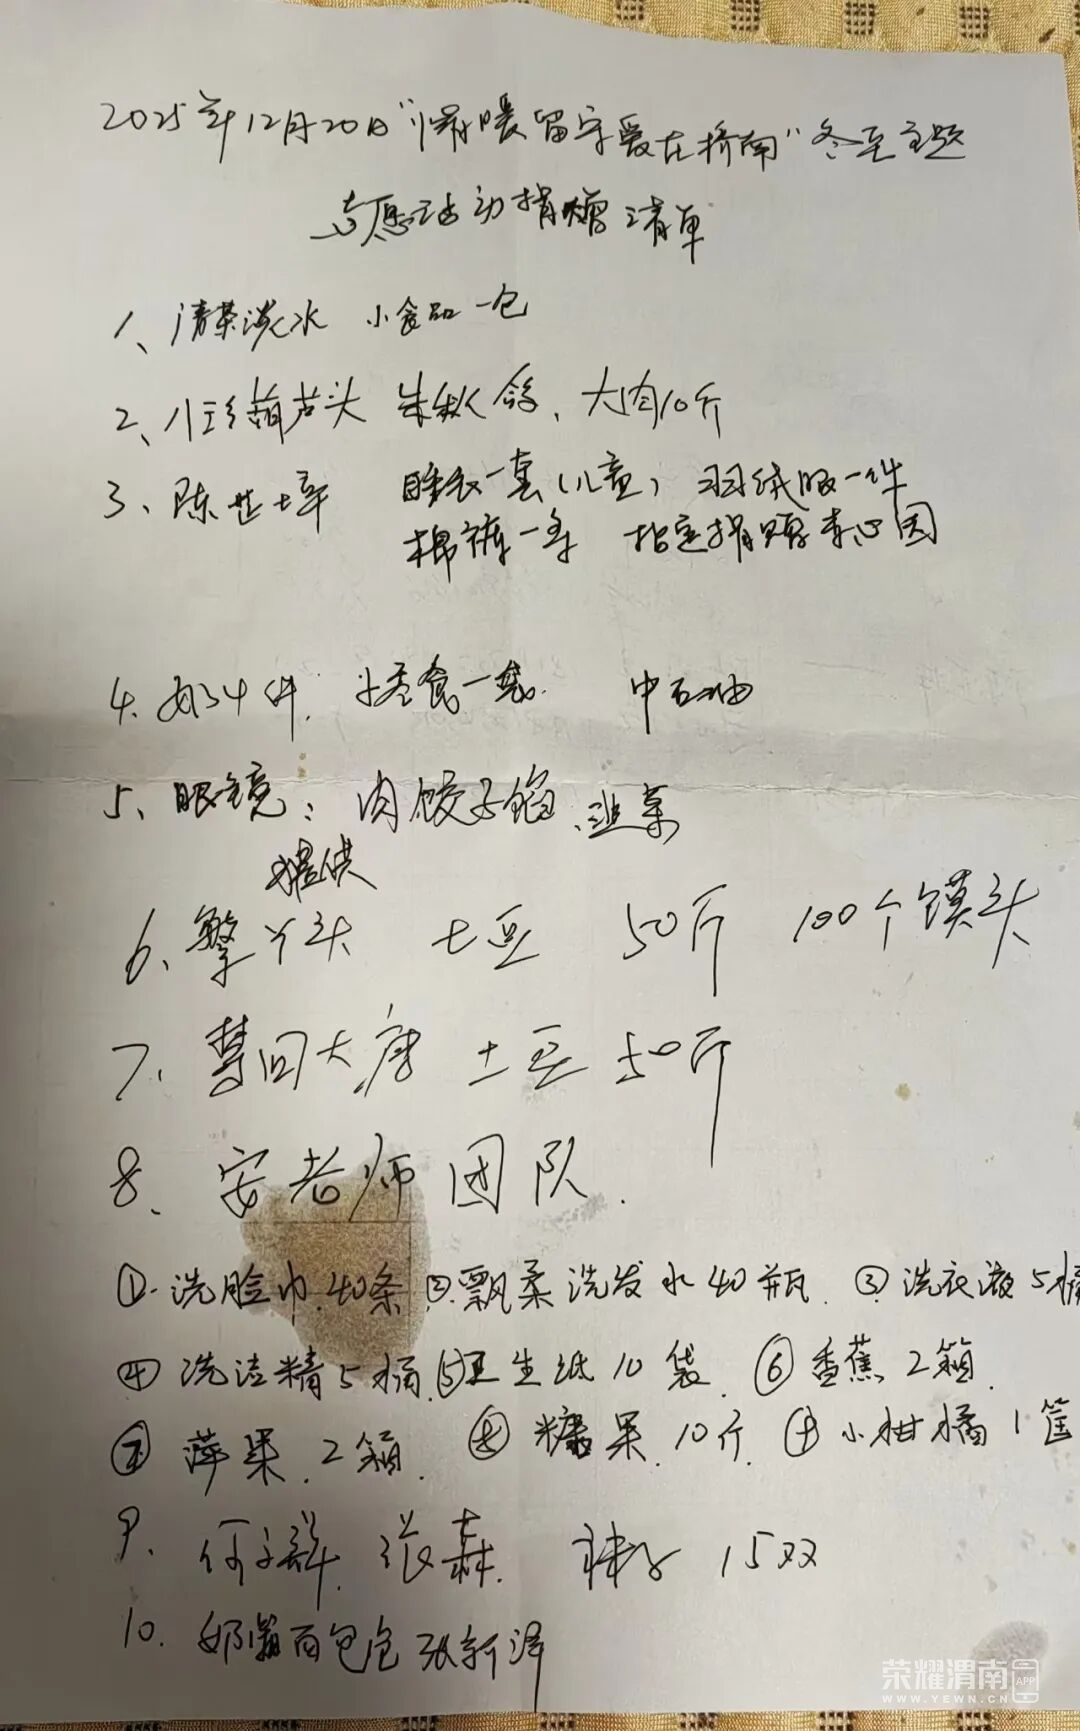 2025年12月20日"情暖留守爱在桥南"冬至主题
志愿活动捐赠清单
1、清茶淡水 小食品一包
2、葫芦头 朱 鸽、大肉10斤
3、陈 睡衣一套(儿童) 羽绒服一件
棉裤一条 指定捐赠李心茵
4.奶4件. 零食一 中石油
5、眼镜: 肉饺子馅、韭菜
提供
6、繁丫头 土豆 50斤 100个馍头
7、梦回大唐 土豆50斤
8、安老师团队.
①.洗脸巾.40条 ②.飘柔洗发水40瓶. ③.洗衣液5桶
④ 洗洁精5桶.⑤卫生纸10袋. ⑥香蕉2箱.
⑦ 苹果.2箱. ⑧ 糖果.10斤. 小柑橘1筐
9. 何 群. 张森. 袜子 15双
10. 奶 面包 张新泽
荣耀渭南 APP
WWW.YEWN.CN